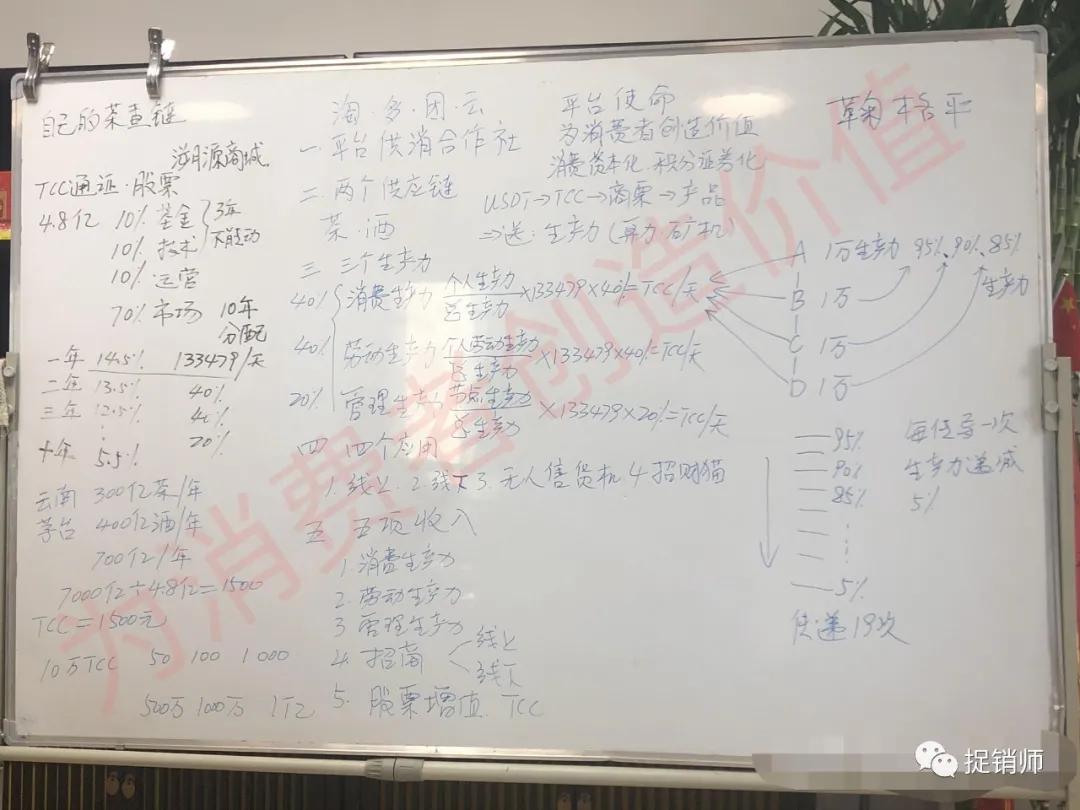 自己的茶查链
溯源商城
TCC通证:股票
4.8亿 10% 基金
10% 技术
3年
不能动
10% 运营
70% 市场 10年
分配
一年 14.5% 133479/天
二年 13.5% 40%
三年 12.5% 40%
⋮ 20%
十年 5.5%
云南 300亿茶/年
茅台 400亿酒/年
700亿/年
7000亿÷4.8亿=1500
TCC=1500元
10万TCC 50 100 1000
500万 1000万 1亿
淘·多·团·云
一 平台供消合作社
二 两个供应链
茶·酒
三 三个生产力
40% 消费生产力 个人生产力/总生产力×133479×40%=TCC/天
40% 劳动生产力 个人劳动生产力/总生产力×133479×40%=TCC/天
20% 管理生产力 节点生产力/总生产力×133479×20%=TCC/天
四 四个应用
1.线上 2.线下 3.无人售货机 4招财猫
五 五项收入
1.消费生产力
2.劳动生产力
3管理生产力
4.招商 线上
线下
5.股票增值 TCC
平台使命
为消费者创造价值
消费资本化、积分证券化
USDT→TCC→商票→产品
⇒送:生产力(算力矿机)
A 1万生产力 95%、90%、85%
生产力
B 1万
C 1万
D 1万
95% 每传导一次
90% 生产力递减
85% 5%
⋮
5%
传递19次
为消费者创造价值
捉销师